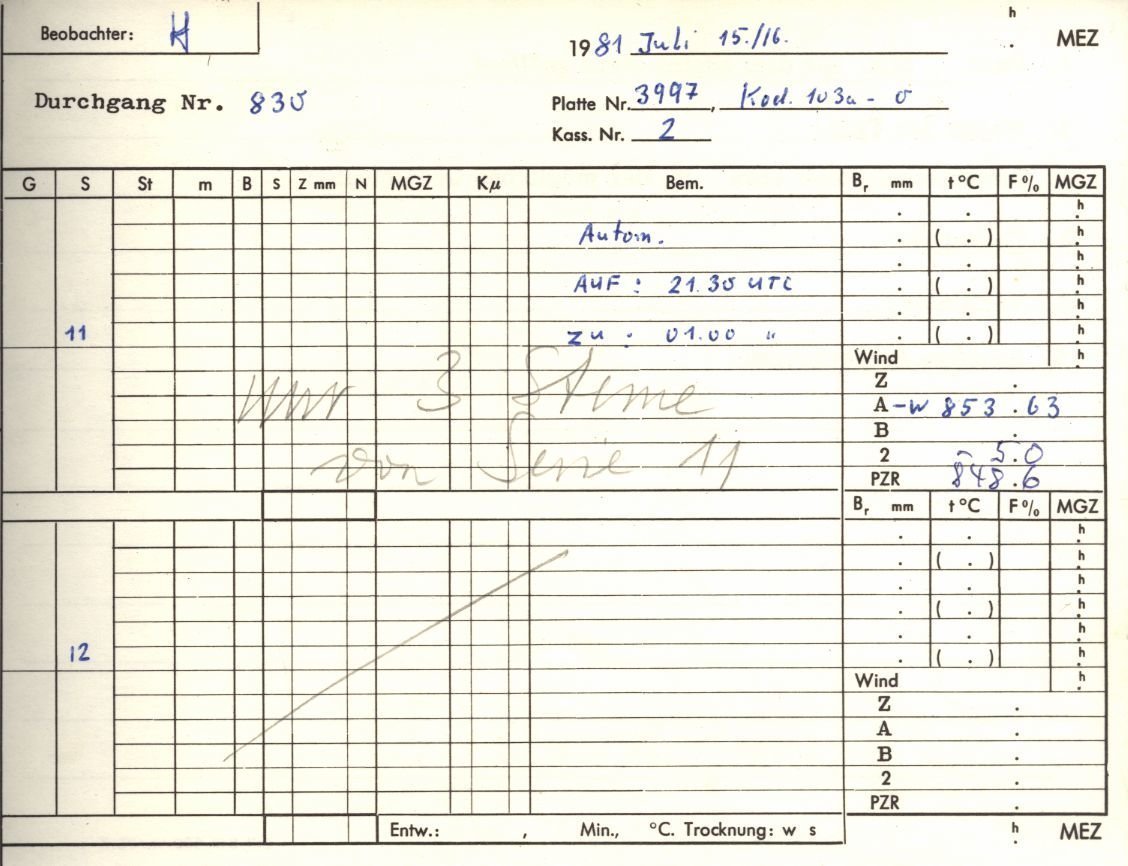 Beobachter: H
h . MEZ
1981 Juli 15./16.
Durchgang Nr. 830
Platte Nr. 3997, Kod. 103a-0
Kass. Nr. 2
G S St m B S Z mm N MGZ Kμ Bem. Br mm t °C F% MGZ
. . h
Autom. . ( . ) h
. . h
AUF : 21.30 UTC . ( . ) h
. . h
11 ZU : 01.00 " . ( . ) h
Wind h
nur 3 Sterne
Z .
A-W 853.63
B .
von Serie 11
2 - 5.0
PZR 848.6
Br mm t °C F% MGZ
. . h
. ( . ) h
. . h
. ( . ) h
. . h
12 . ( . ) h
Wind h
Z .
A .
B .
2 .
PZR .
Entw.: , Min., °C. Trocknung: w s h . MEZ